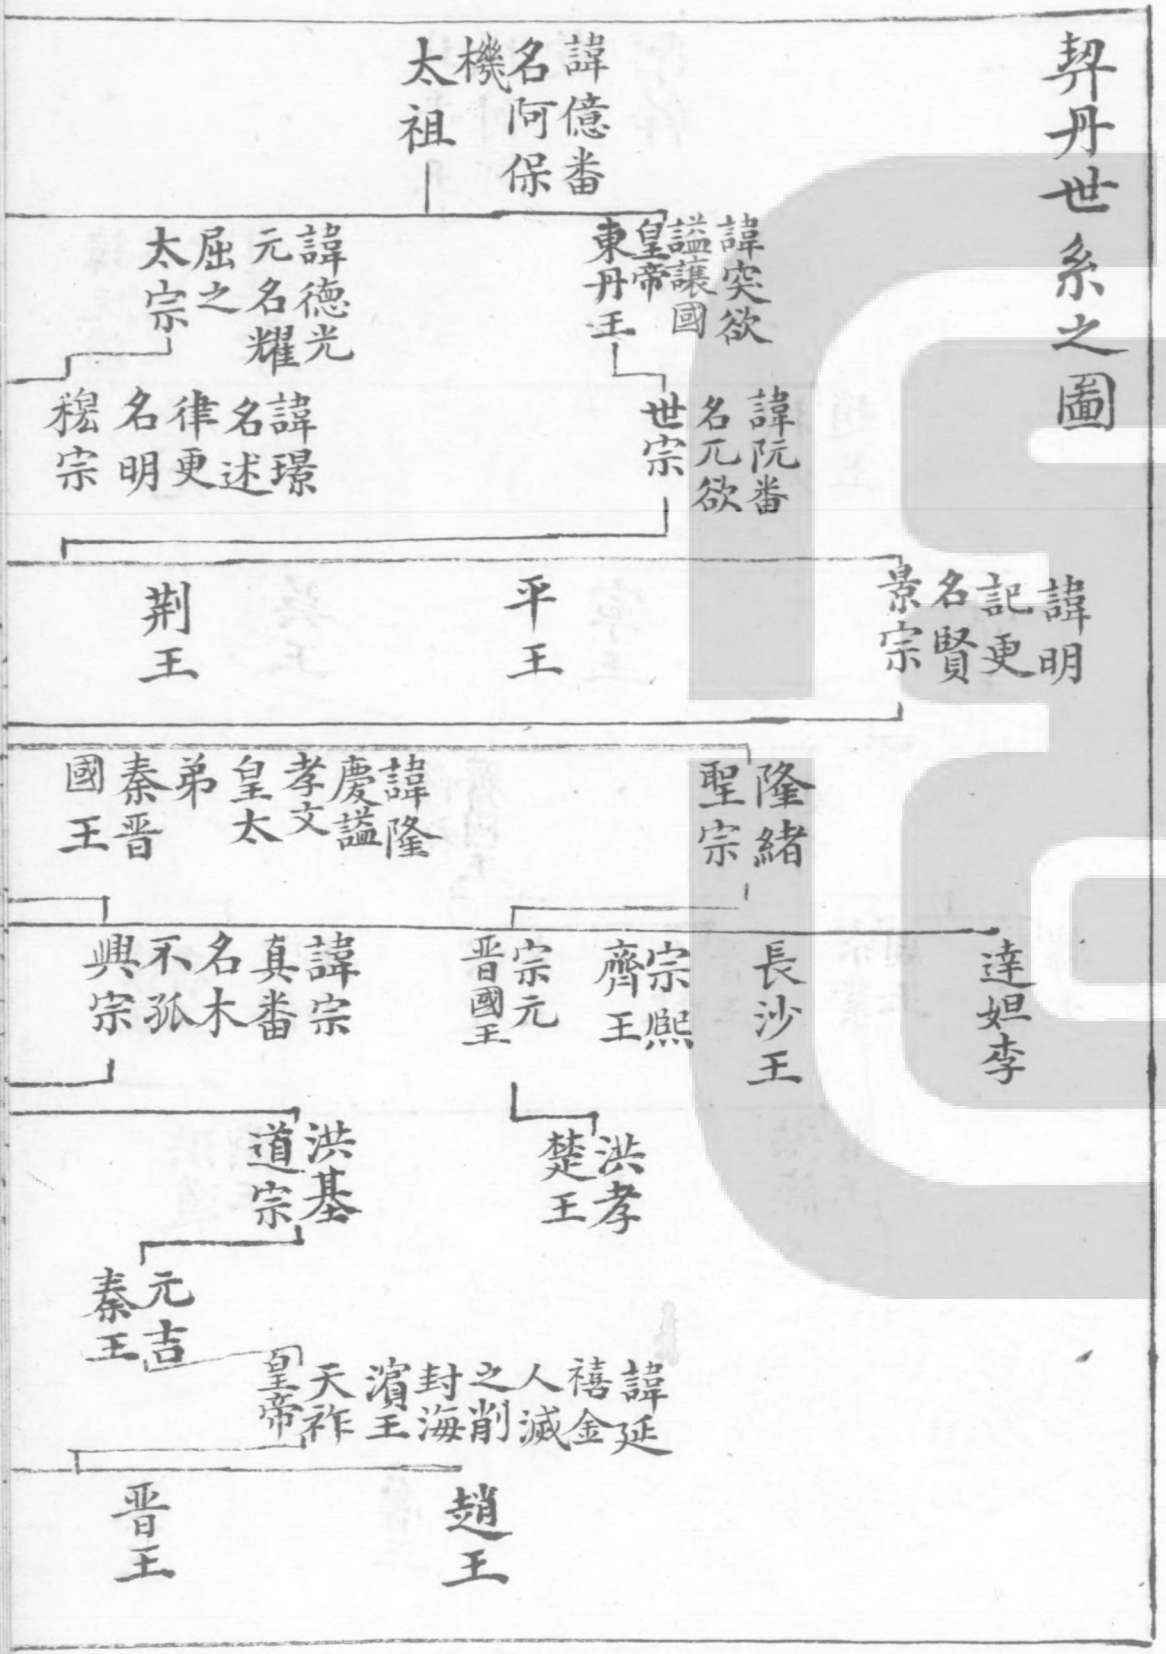 契丹世系之圖
諱億番
名阿保
機
太祖
諱突欲
謚讓國
皇帝
東丹王
諱德光
元名耀
屈之
太宗
諱阮番
名兀欲
世宗
諱璟
名述
律更
名明
穆宗
諱明
記更
名賢
景宗
平王
荆王
隆緒
聖宗
諱隆
慶謚
孝文
皇太
弟
秦晋
國王
達妲李
長沙王
宗熙
齊王
宗元
晋國王
諱宗
真番
名木
不孤
興宗
洪孝
楚王
洪基
道宗
元吉
秦王
諱延
禧金
人滅
之削
封海
濵王
天祚
皇帝
趙王
晋王